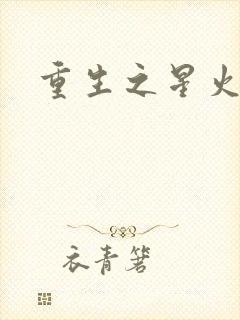 重生之星火
衣青箬